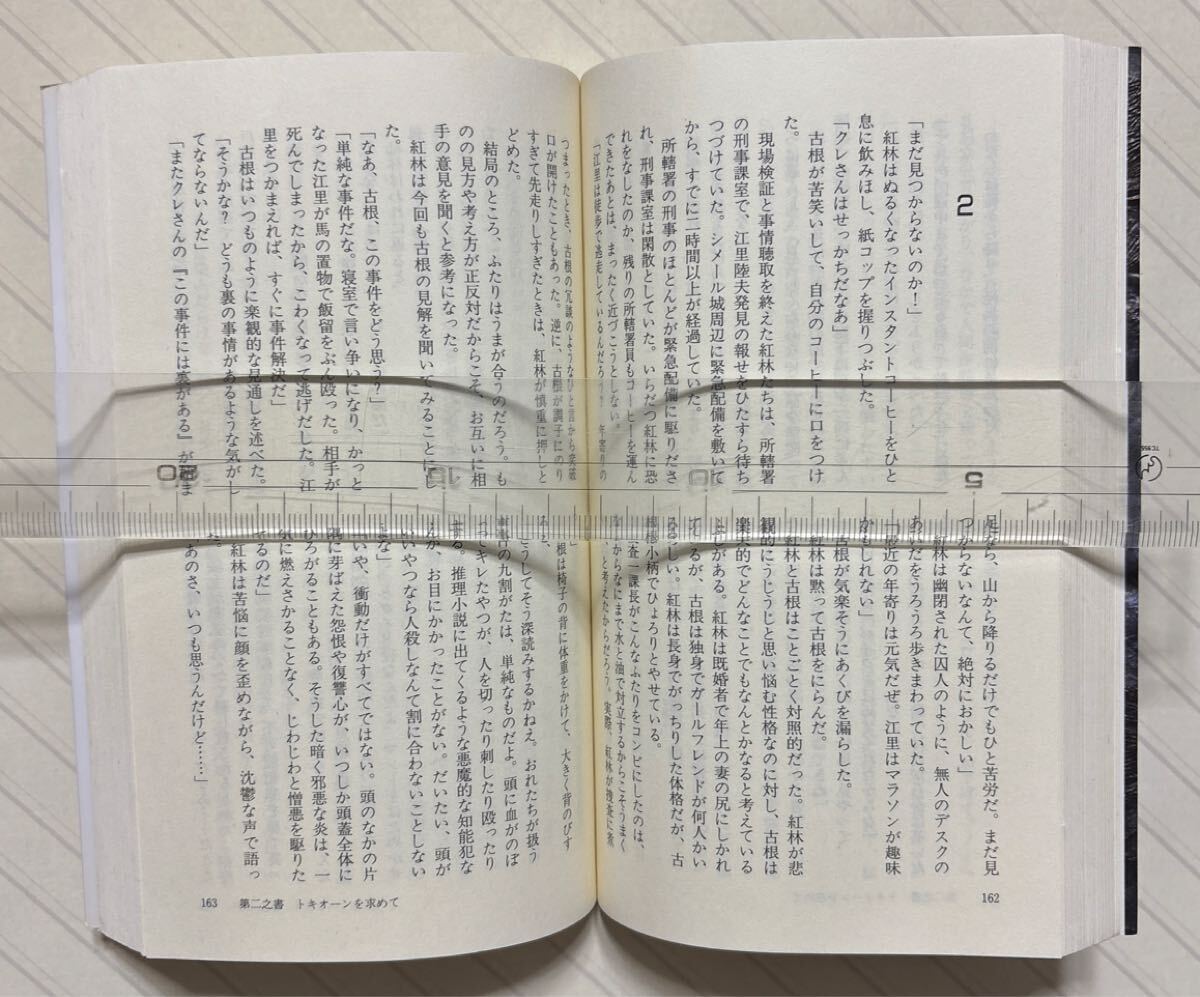 2
「まだ見つからないのか！」
紅林はぬるくなったインスタントコーヒーをひと
息に飲みほし、紙コップを握りつぶした。
「クレさんはせっかちだなあ」
古根が苦笑いして、自分のコーヒーに口をつけ
た。
現場検証と事情聴取を終えた紅林たちは、所轄署
の刑事課室で、江里陸夫発見の報せをひたすら待ち
つづけていた。シメール城周辺に緊急配備を敷いて
から、すでに二時間以上が経過していた。
所轄署の刑事のほとんどが緊急配備に駆りださ
れ、刑事課室は閑散としていた。いらだつ紅林に恐
れをなしたのか、残りの所轄署員もコーヒーを運ん
できたあとは、まったく近づこうとしない。
「江里は徒歩で逃走しているんだろう？　年寄りの
足なら、山から降りるだけでもひと苦労だ。まだ見
つからないなんて、絶対におかしい」
紅林は幽閉された囚人のように、無人のデスクの
あいだをうろうろ歩きまわっていた。
「最近の年寄りは元気だぜ。江里はマラソンが趣味
かもしれない」
古根が気楽そうにあくびを漏らした。
紅林は黙って古根をにらんだ。
紅林と古根はことごとく対照的だった。紅林が悲
観的にうじうじと思い悩む性格なのに対し、古根は
楽天的でどんなことでもなんとかなると考えている
ふしがある。紅林は既婚者で年上の妻の尻にしかれ
ているが、古根は独身でガールフレンドが何人かい
るらしい。紅林は長身でがっちりした体格だが、古
根は小柄でひょろりとやせている。
査一課長がこんなふたりをコンビにしたのは、
からなにまで水と油で対立するからこそうまく
と考えたからだろう。実際、紅林が捜査に煮
162
つまったとき、古根の冗談のようなひと言から突破
口が開けたこともあった。逆に、古根が調子にのり
すぎて先走りしすぎたときは、紅林が慎重に押しと
どめた。
結局のところ、ふたりはうまが合うのだろう。も
のの見方や考え方が正反対だからこそ、お互いに相
手の意見を聞くと参考になった。
紅林は今回も古根の見解を聞いてみることにし
た。
「なあ、古根、この事件をどう思う？」
「単純な事件だな。寝室で言い争いになり、かっと
なった江里が馬の置物で飯留をぶん殴った。相手が
死んでしまったから、こわくなって逃げだした。江
里をつかまえれば、すぐに事件解決だ」
古根はいつものように楽観的な見通しを述べた。
「そうかな？　どうも裏の事情があるような気がし
てならないんだ」
「またクレさんの『この事件には裏がある』が始ま
」
根は椅子の背に体重をかけて、大きく背のびす
る。
うしてそう深読みするかねえ。おれたちが扱う
事件の九割がたは、単純なものだよ。頭に血がのぼ
ってキレたやつが、人を切ったり刺したり殴ったり
する。推理小説に出てくるような悪魔的な知能犯な
んか、お目にかかったことがない。だいたい、頭が
いいやつなら人殺しなんて割に合わないことしない
な」
「いや、衝動だけがすべてではない。頭のなかの片
隅に芽ばえた怨恨や復讐心が、いつしか頭蓋全体に
ひろがることもある。そうした暗く邪悪な炎は、一
気に燃えさかることなく、じわじわと憎悪を駆りた
てるのだ」
紅林は苦悩に顔を歪めながら、沈鬱な声で語っ
た。
「あのさ、いつも思うんだけど……」
163　第二之書　トキオーンを求めて
5
10
15
20